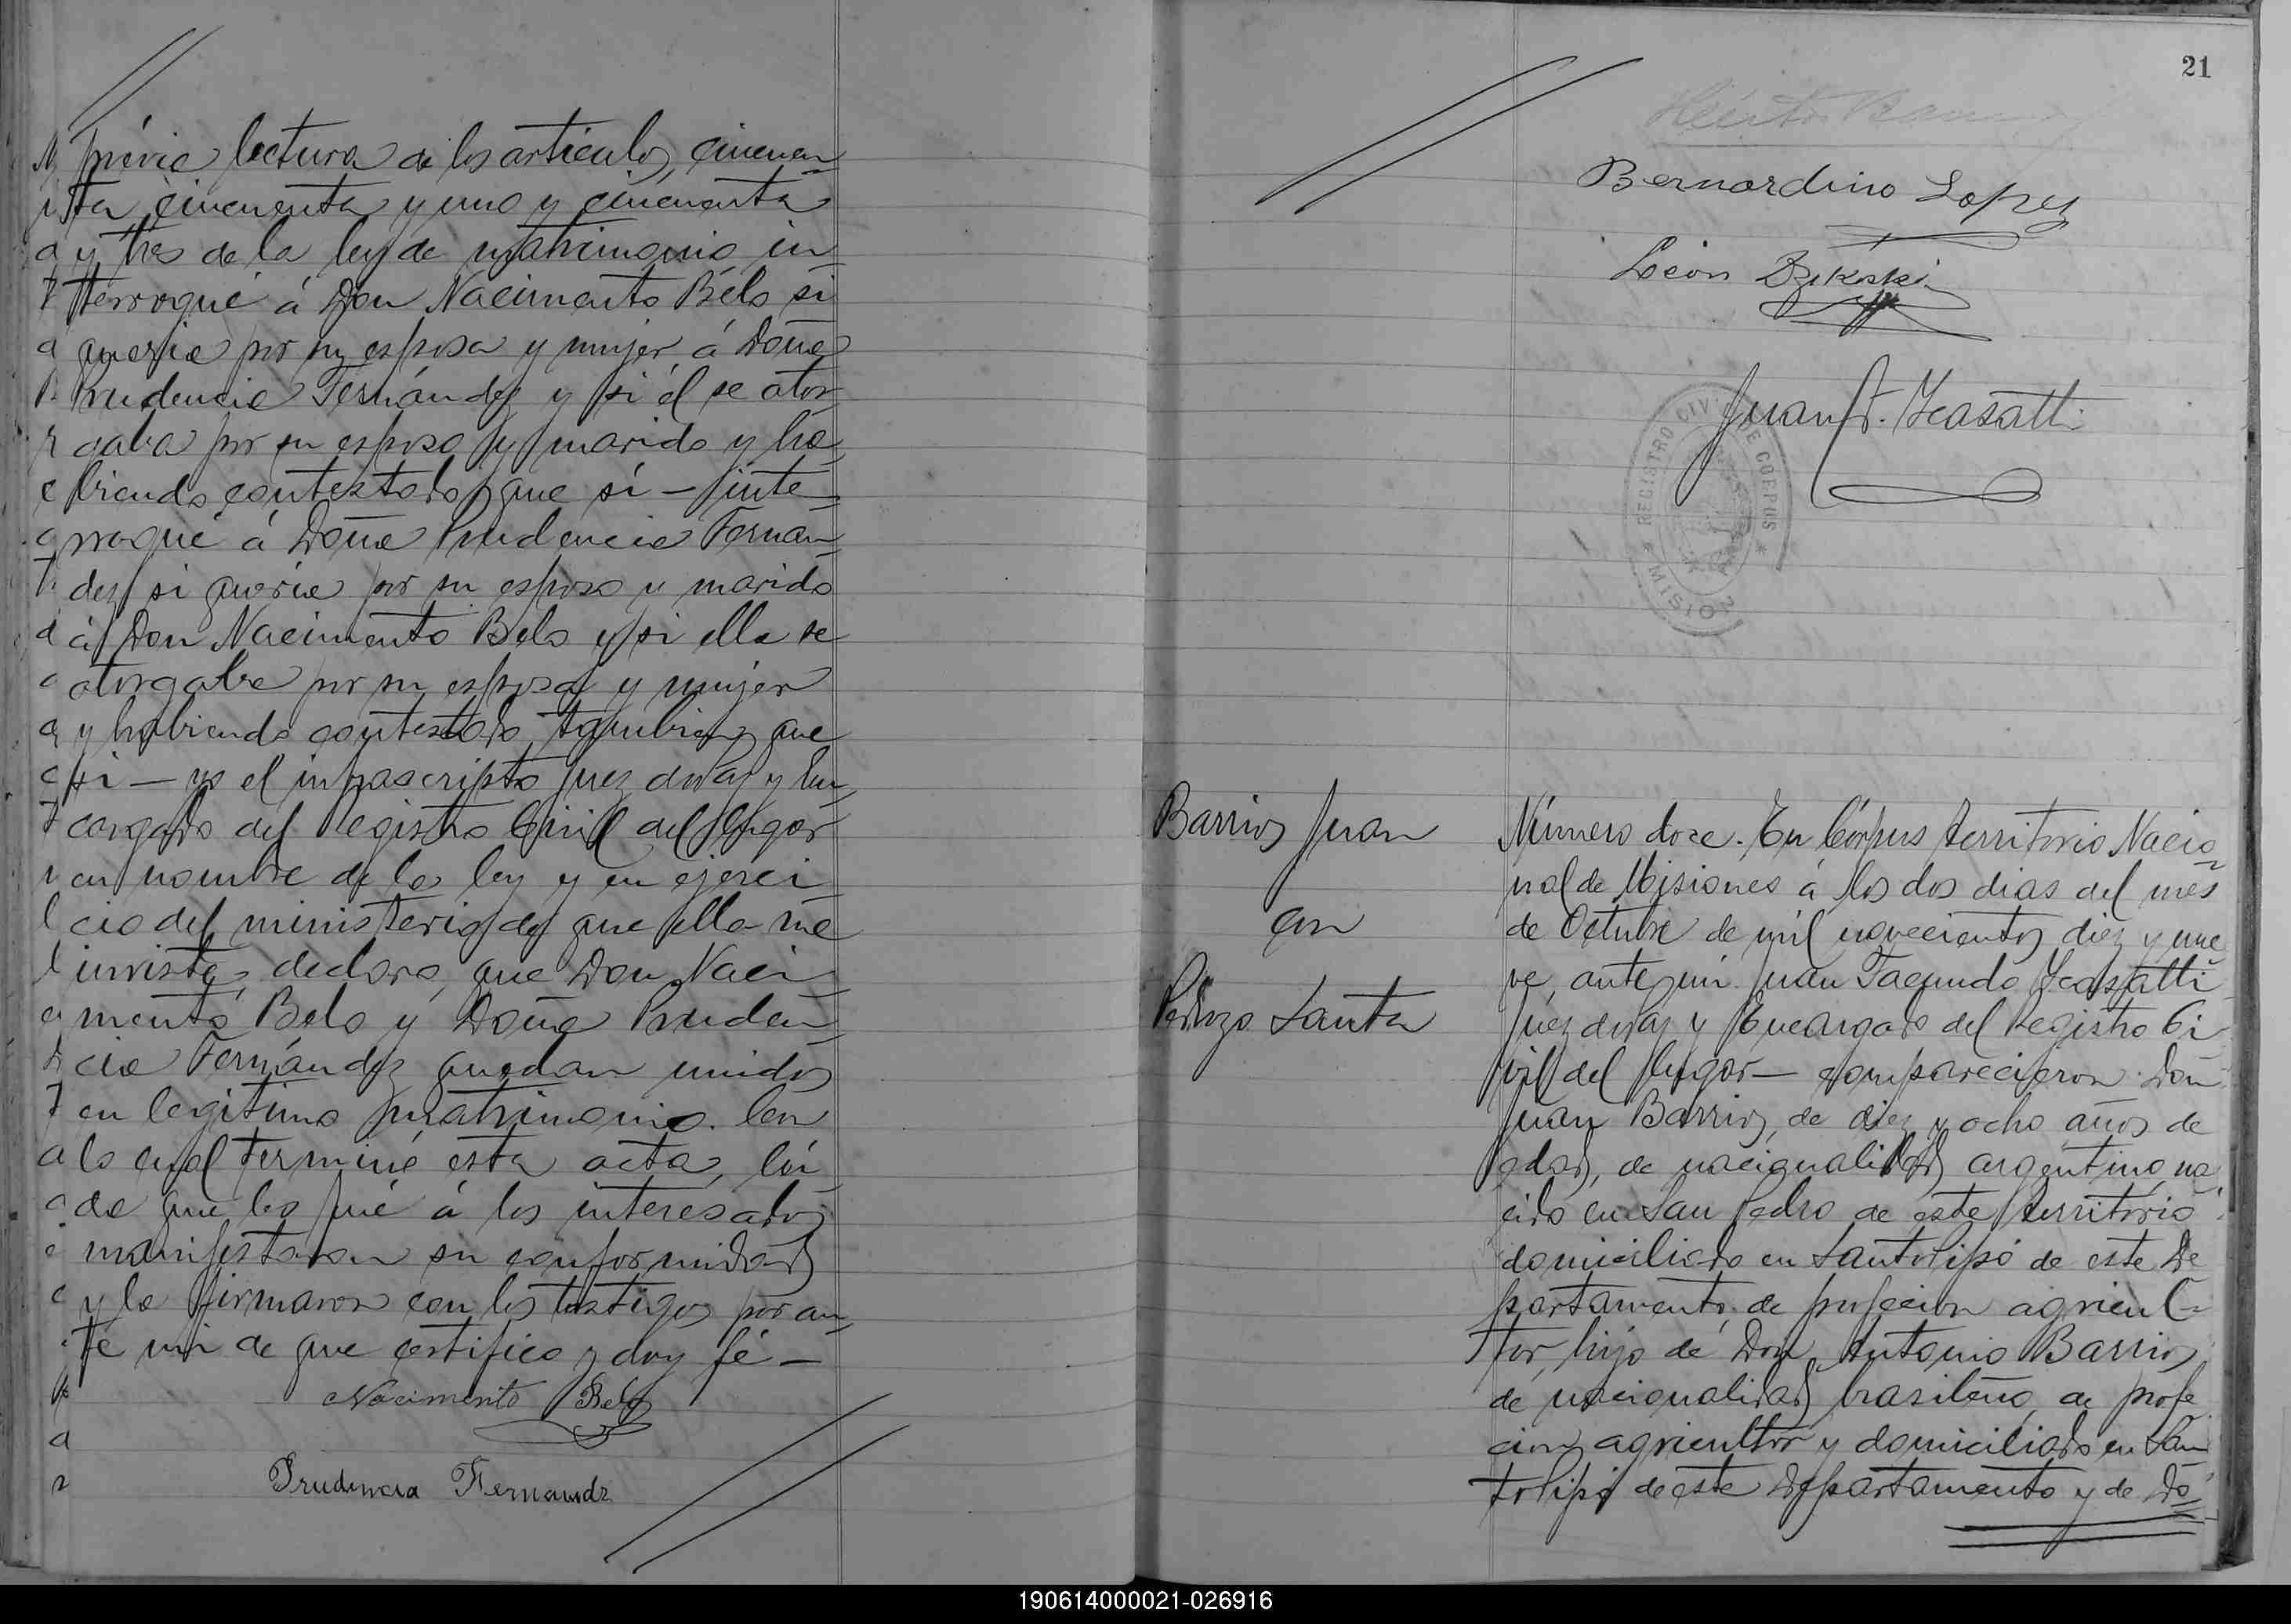 prévia lectura de los artículos, cincuen
ta cincuenta y uno y cincuenta
y tres de la ley de matrimonio in
terrogué á Don Nacimento Bélo si
queria por su esposa y mujer á Doña
Prudencia Fernández y si él se otor
gaba por su esposo y marido y ha
biendo contestado que sí – inte
rrogué á Doña Prudencia Fernan
dez si queria por su esposo y marido
á Don Nacimento Belo y si ella se
otorgaba por su esposa y mujer
y habiendo contestado tambien que
si – yo el infrascripto Juez de Paz y En
cargado del Registro Civil del lugar
en nombre de la ley y en ejerci
cio del ministerio de que ella me
inviste, declaro, que Don Naci
mento Belo y Doña Pruden
cia Fernández quedan unidos
en legitimo matrimonio. Con
lo cual terminé esta acta, léi
da que les fué á los interesados
manifestaron su conformidad
y la firmaron con los testigos por an
te mi de que certifico y doy fé –
Nacimento Belo
Prudencia Fernandz
21
Bernardino Lopez
León
Juan F. Ycasatti
REGISTRO CIVIL DE CORPUS * MISIONES *
Barrios Juan
con
Pedrozo Santa
Número doce. En Córpus Territorio Nacio
nal de Misiones á los dos dias del mes
de Octubre de mil novecientos diez y nue
ve, ante mi Juan Facundo Ycasatti
Juez de Paz y Encargado del Registro Ci
vil del lugar – comparecieron Don
Juan Barrios, de diez y ocho años de
edad, de nacionalidad argentino, na
cido en San Pedro de este Territorio
domiciliado en Santo Pipó de este De
partamento, de profecion agricul-
tor, hijo de Don Antonio Barrios
de nacionalidad brasileño, de profe
cion agricultor y domiciliado en San
to Pipó de este Departamento y de Do